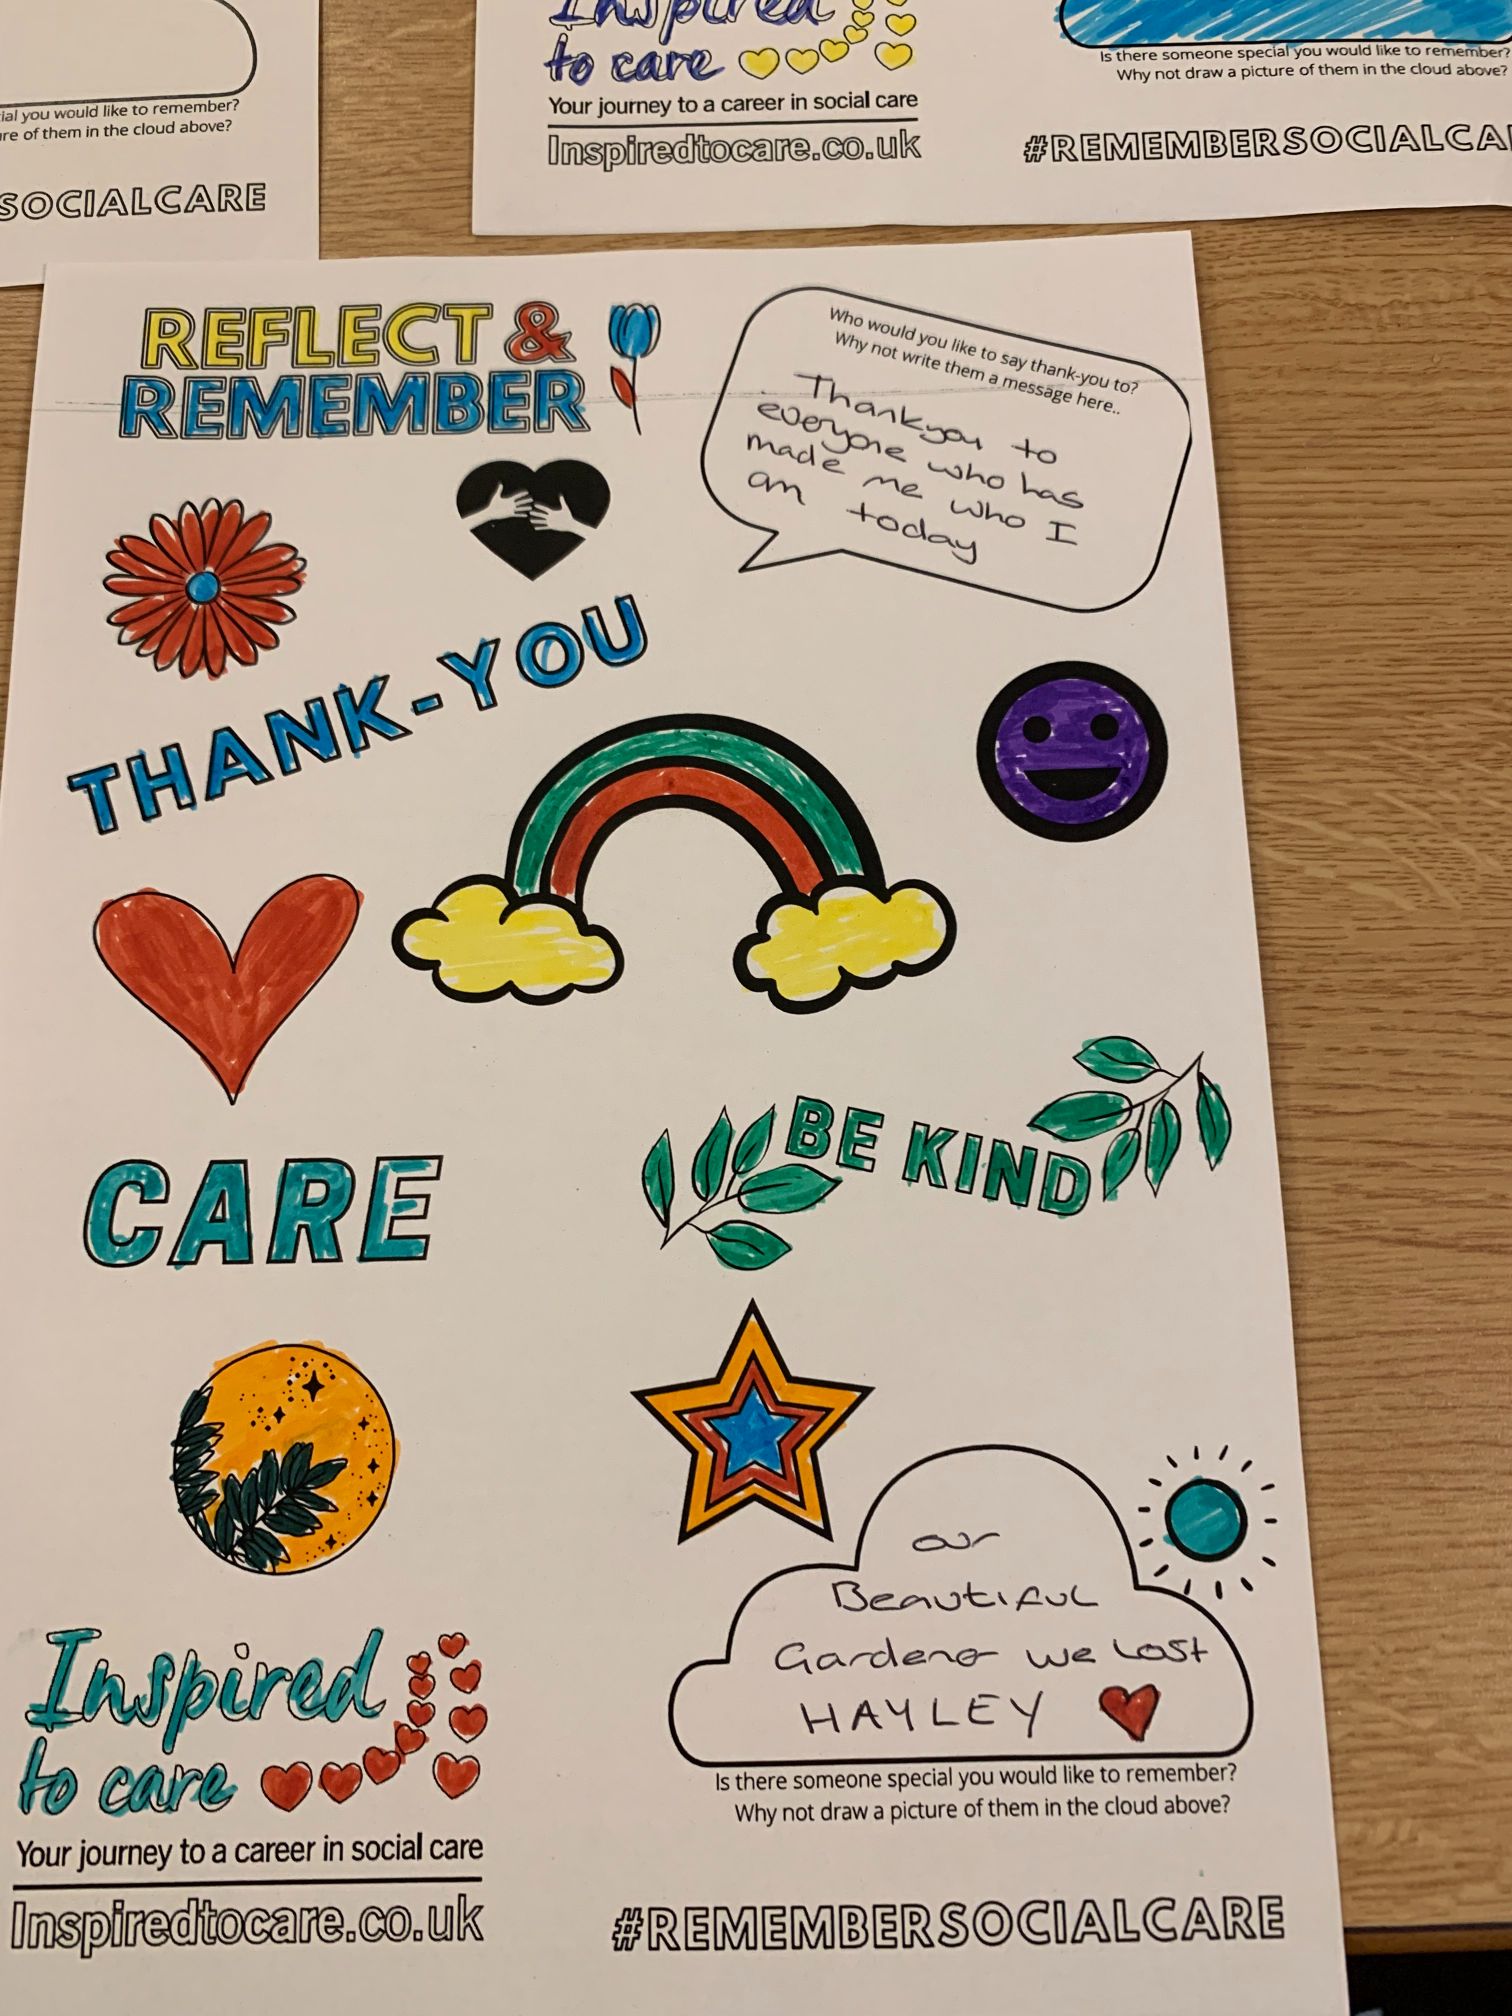 ial you would like to remember?
re of them in the cloud above?
SOCIALCARE
Inspired
to care
Your journey to a career in social care
Inspiredtocare.co.uk
Is there someone special you would like to remember?
Why not draw a picture of them in the cloud above?
#REMEMBERSOCIALCA
REFLECT &
REMEMBER
Who would you like to say thank-you to?
Why not write them a message here..
Thankyou to
everyone who has
made me who I
am today
THANK-YOU
BE KIND
CARE
our
Beautiful
Gardener we Lost
HAYLEY
Is there someone special you would like to remember?
Why not draw a picture of them in the cloud above?
Inspired
to care
Your journey to a career in social care
Inspiredtocare.co.uk
#REMEMBERSOCIALCARE